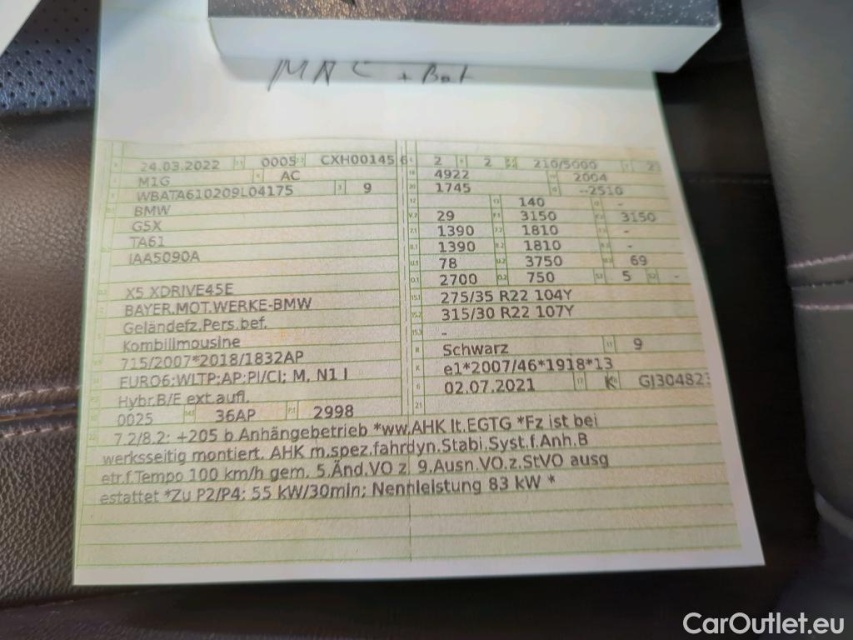 MAC + Bat
24.03.2022 0005 CXH00145 6 2 2 210/5000
M1G AC 4922 2004
WBATA610209L04175 9 1745 --2510
BMW 140 -
G5X 29 3150 3150
TA61 1390 1810 -
IAA5090A 1390 1810 -
78 3750 69
2700 750 5 -
X5 XDRIVE45E 275/35 R22 104Y
BAYER.MOT.WERKE-BMW 315/30 R22 107Y
Geländefz.Pers.bef. -
Kombilimousine Schwarz 9
715/2007*2018/1832AP e1*2007/46*1918*13
EURO6;WLTP;AP;PI/CI; M, N1 I 02.07.2021 K GJ304823
Hybr.B/E ext.aufl.
0025 36AP 2998
7.2/8.2: +205 b.Anhängebetrieb *ww.AHK lt.EGTG *Fz ist bei
werksseitig montiert. AHK m.spez.fahrdyn.Stabi.Syst.f.Anh.B
etr.f.Tempo 100 km/h gem. 5.Änd.VO z. 9.Ausn.VO.z.StVO ausg
estattet *Zu P2/P4: 55 kW/30min; Nennleistung 83 kW *
CarOutlet.eu